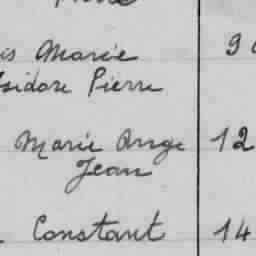 is Marie 9
Isidore Pierre
Marie Ange 12
Jean
Constant 14